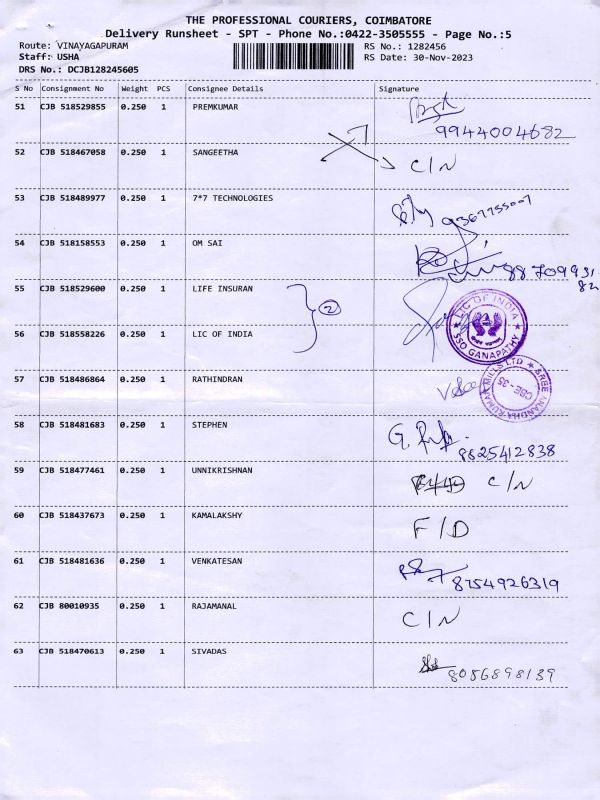 THE PROFESSIONAL COURIERS, COIMBATORE
Delivery Runsheet - SPT - Phone No.:0422-3505555 - Page No.:5
Route: VINAYAGAPURAM
Staff: USHA
DRS No.: DCJB128245605
RS No.: 1282456
RS Date: 30-Nov-2023
S No Consignment No Weight PCS Consignee Details Signature
51 CJB 518529855 0.250 1 PREMKUMAR
9944004682
52 CJB 518467058 0.250 1 SANGEETHA C/N
53 CJB 518489977 0.250 1 7*7 TECHNOLOGIES 9367755007
54 CJB 518158553 0.250 1 OM SAI
88709931
82
55 CJB 518529600 0.250 1 LIFE INSURAN
2
56 CJB 518558226 0.250 1 LIC OF INDIA
LIC OF INDIA
SSO GANAPATHY
57 CJB 518486864 0.250 1 RATHINDRAN
SREE ANANDHAKUMAR MILLS LTD
CBE - 35
58 CJB 518481683 0.250 1 STEPHEN
9825412838
59 CJB 518477461 0.250 1 UNNIKRISHNAN C/N
60 CJB 518437673 0.250 1 KAMALAKSHY F/D
61 CJB 518481636 0.250 1 VENKATESAN
8754926319
62 CJB 80010935 0.250 1 RAJAMANAL C/N
63 CJB 518470613 0.250 1 SIVADAS
8056898139